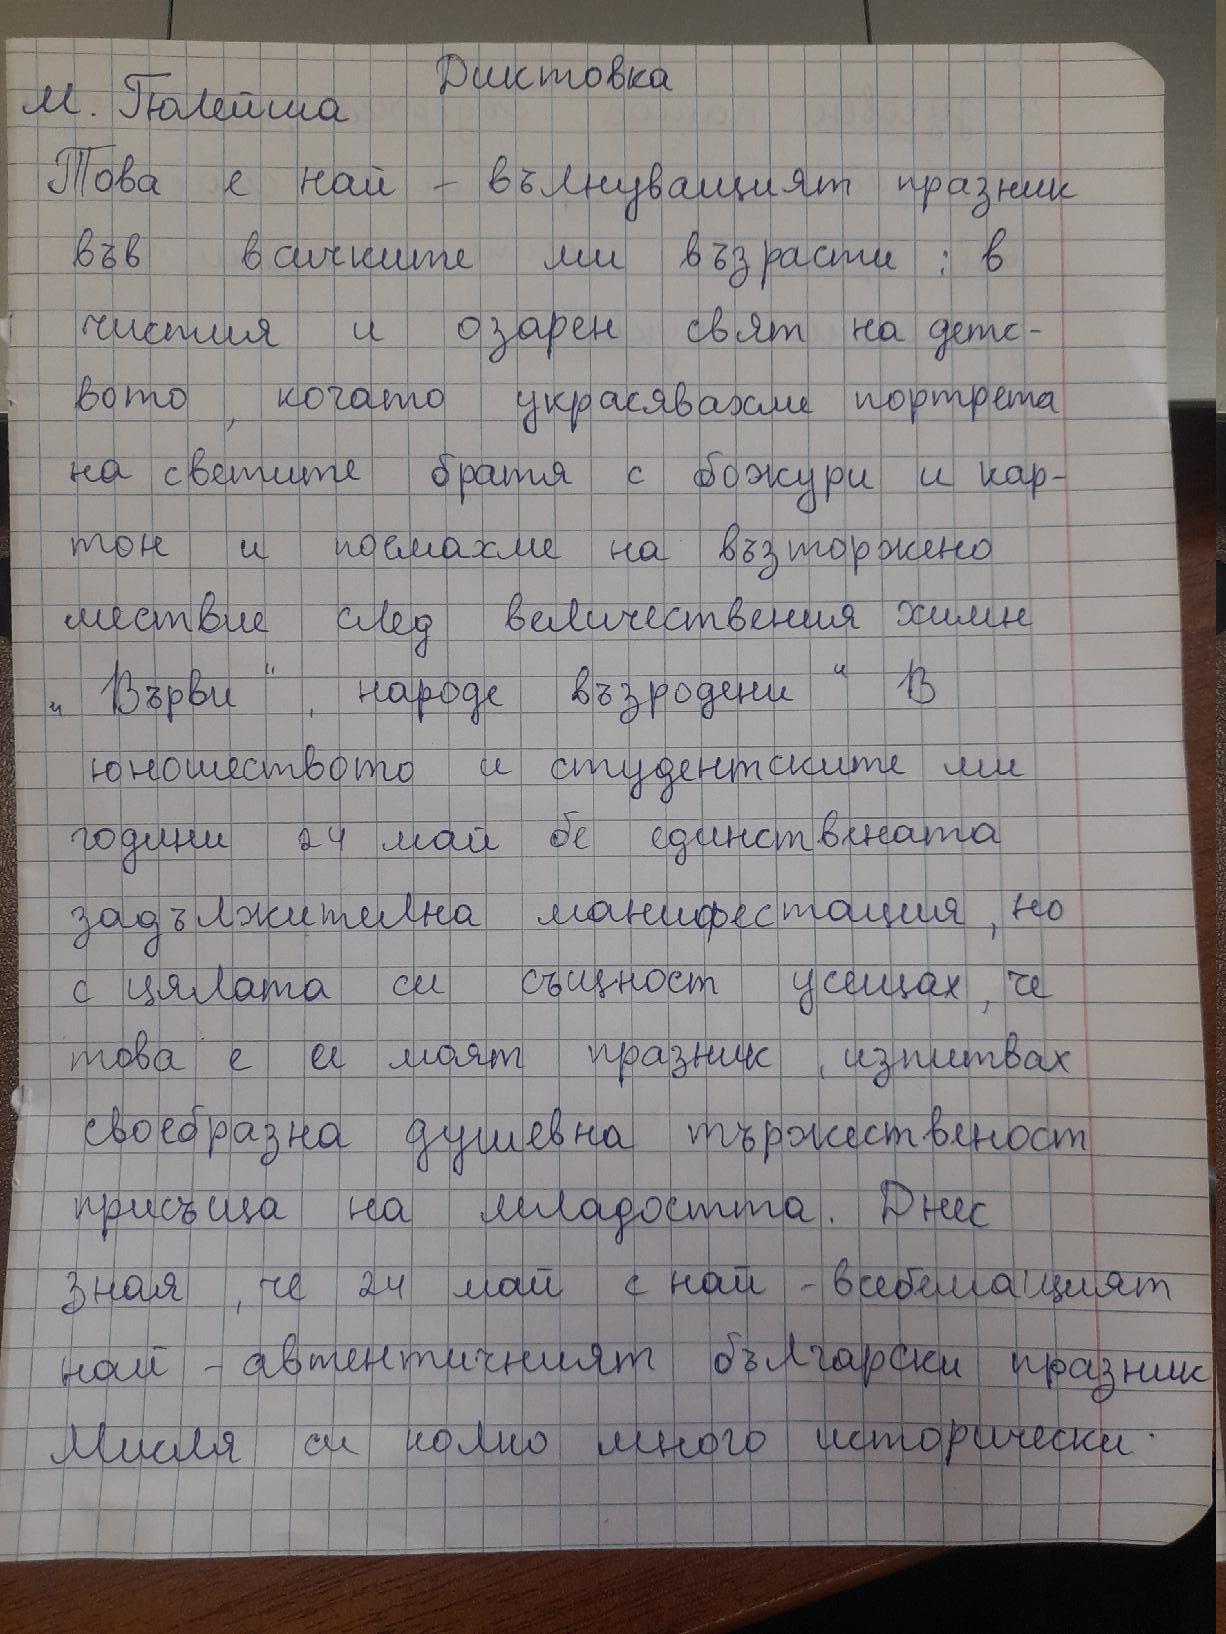 Диктовка
М. Гюлейша
Това е най - вълнуващият празник
във всичките ми възрасти : в
чистия и озарен свят на детс-
вото , когато украсявахме портрета
на светите братя с божури и кар-
тон и поемахме на възторжено
шествие след величествения химн
„ Върви “ , народе възродени “ В
юношеството и студентските ми
години 24 май бе единствената
задължителна манифестация , но
с цялата си същност усещах , че
това е си моят празник , изпитвах
своебразна душевна тържественост
присъща на младостта . Днес
зная , че 24 май е най - всебемащият
най - автентичният български празник
Мисля си колко много исторически